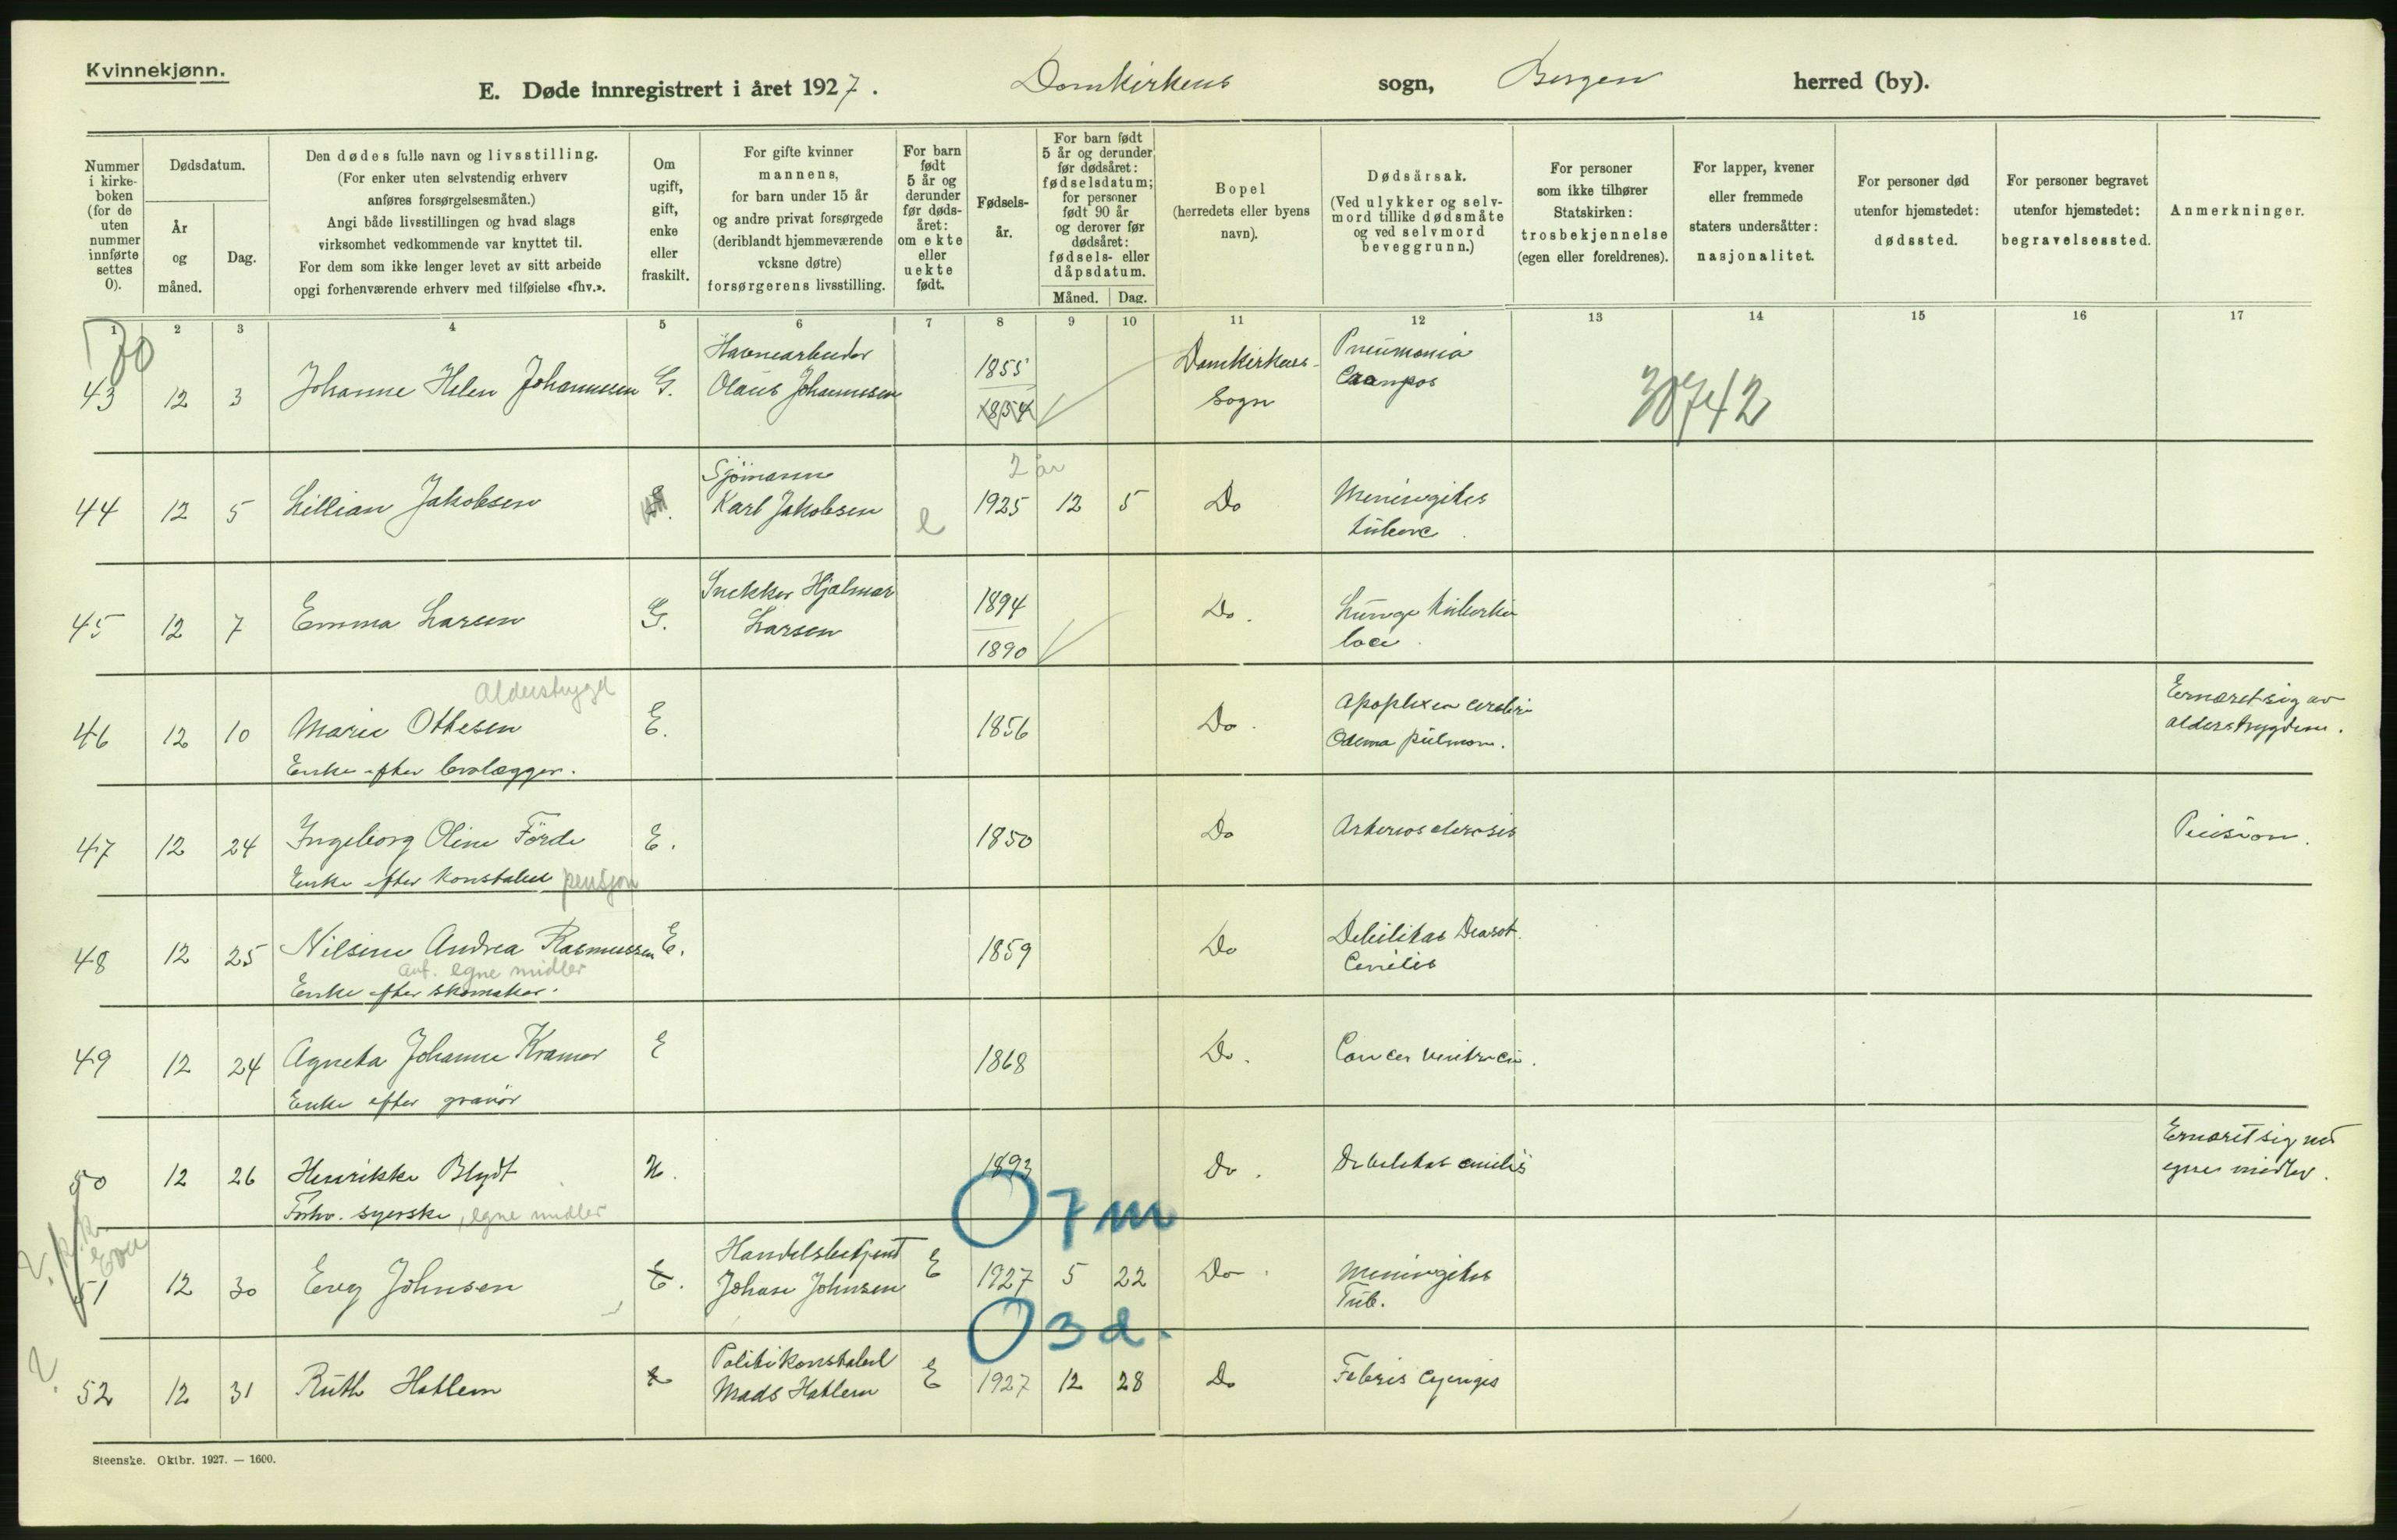 Kvinnekjønn.
E. Døde innregistrert i året 1927. Domkirkens sogn, Bergen herred (by).
Nummer i kirke-boken (for de uten nummer innførte settes 0).
Dødsdatum.
År og måned.
Dag.
Den dødes fulle navn og livsstilling.
(For enker uten selvstendig erhverv
anføres forsørgelsesmåten.)
Angi både livsstillingen og hvad slags
virksomhet vedkommende var knyttet til.
For dem som ikke lenger levet av sitt arbeide
opgi forhenværende erhverv med tilføielse «fhv.».
Om ugift, gift, enke eller fraskilt.
For gifte kvinner
mannens,
for barn under 15 år
og andre privat forsørgede
(deriblandt hjemmeværende
voksne døtre)
forsørgerens livsstilling.
For barn født 5 år og derunder før døds-året: om ekte eller uekte født.
Fødsels-år.
For barn født
5 år og derunder
før dødsåret:
fødselsdatum;
for personer
født 90 år
og derover før
dødsåret:
fødsels- eller
dåpsdatum.
Måned. Dag.
Bopel
(herredets eller byens
navn).
Dødsårsak.
(Ved ulykker og selv-
mord tillike dødsmåte
og ved selvmord
beveggrunn.)
For personer
som ikke tilhører
Statskirken:
trosbekjennelse
(egen eller foreldrenes).
For lapper, kvener
eller fremmede
staters undersåtter:
nasjonalitet.
For personer død
utenfor hjemstedet:
dødssted.
For personer begravet
utenfor hjemstedet:
begravelsessted.
Anmerkninger.
1 2 3 4 5 6 7 8 9 10 11 12 13 14 15 16 17
43 12 3 Johanne Helen Johannesen G. Havnearbeider Olaus Johannesen 1855 1854 Domkirkens Sogn Pneumonia
30742
2 år
44 12 5 Lillian Jakobsen Sjömann Karl Jakobsen e 1925 12 5 Do Meningites tuberc
45 12 7 Emma Larsen G. Snekker Hjalmar Larsen 1894 1890 Do. Lunge tuberku lose
Alderstrygd
46 12 10 Marie Ottesen E. 1856 Do. Apoplexia cerebri Ödema pulmon. Ernæret sig av alderstrygden.
Enke efter brolægger.
47 12 24 Ingeborg Oline Förde E. 1850 Do Arteriosclerosis Pension.
Enke efter konstabel pensjon
48 12 25 Nilsine Andrea Rasmussen E. 1859 Do Debilitas Senilis
ant. egne midler
Enke efter skomaker.
49 12 24 Agneta Johanne Kramer E 1868 Do. Cancer ventriculi.
Enke efter gravör
50 12 26 Henrikke Blydt U. 1893 Do. Debilitas senilis Ernæret sig ved egne midler.
Forhv. syerske, egne midler
7 m
Eva
51 12 30 Evg Johnsen E. Handelsbetjent Johan Johnsen E 1927 5 22 Do. Meningites Tub.
3 d.
52 12 31 Ruth Hatlem Politikonstabel Mads Hatlem E 1927 12 28 Do Febris
Steenske. Oktbr. 1927. — 1600.